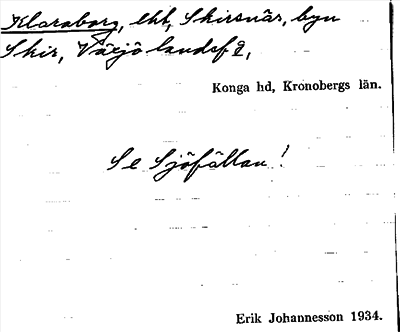 Klaraborg, lht, Skirsnäs, byn
Skir, Växjö landsf.,
Konga hd, Kronobergs län.
Se Sjöfällan!
Erik Johannesson 1934.